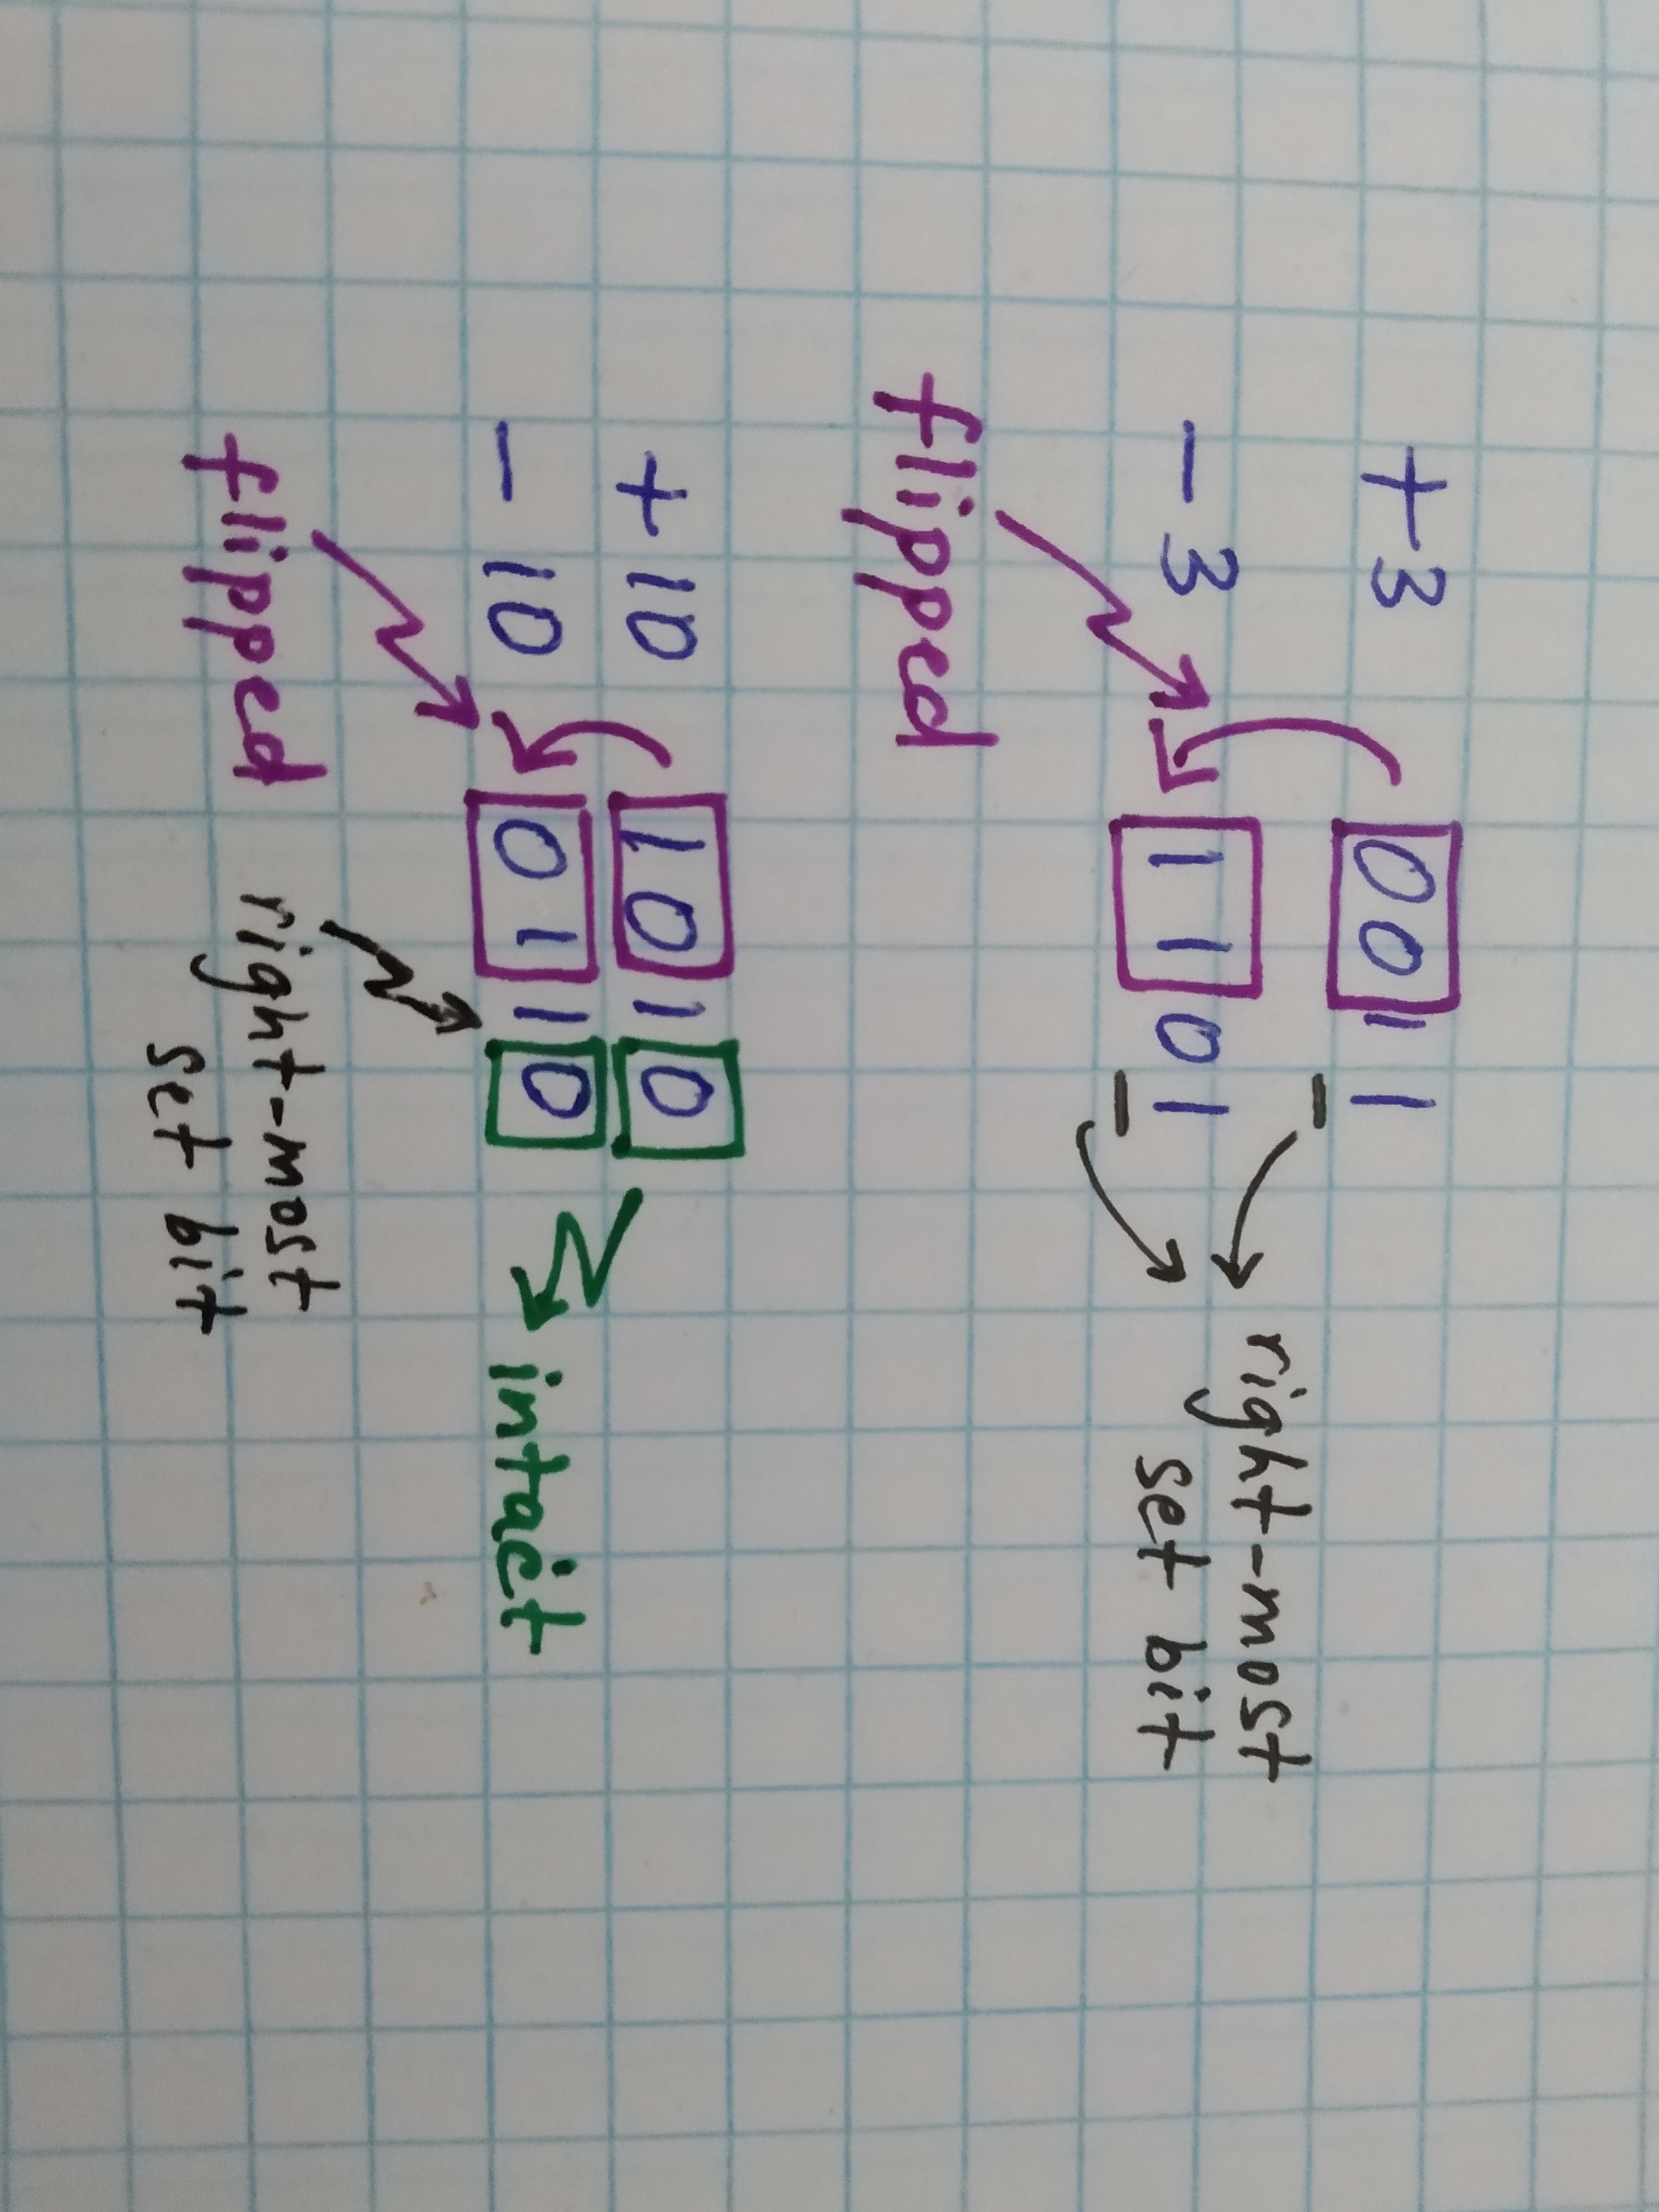 +3 0011
right-most
set bit
-3 1101
flipped
+10 1010
-10 0110
intact
flipped
right-most
set bit